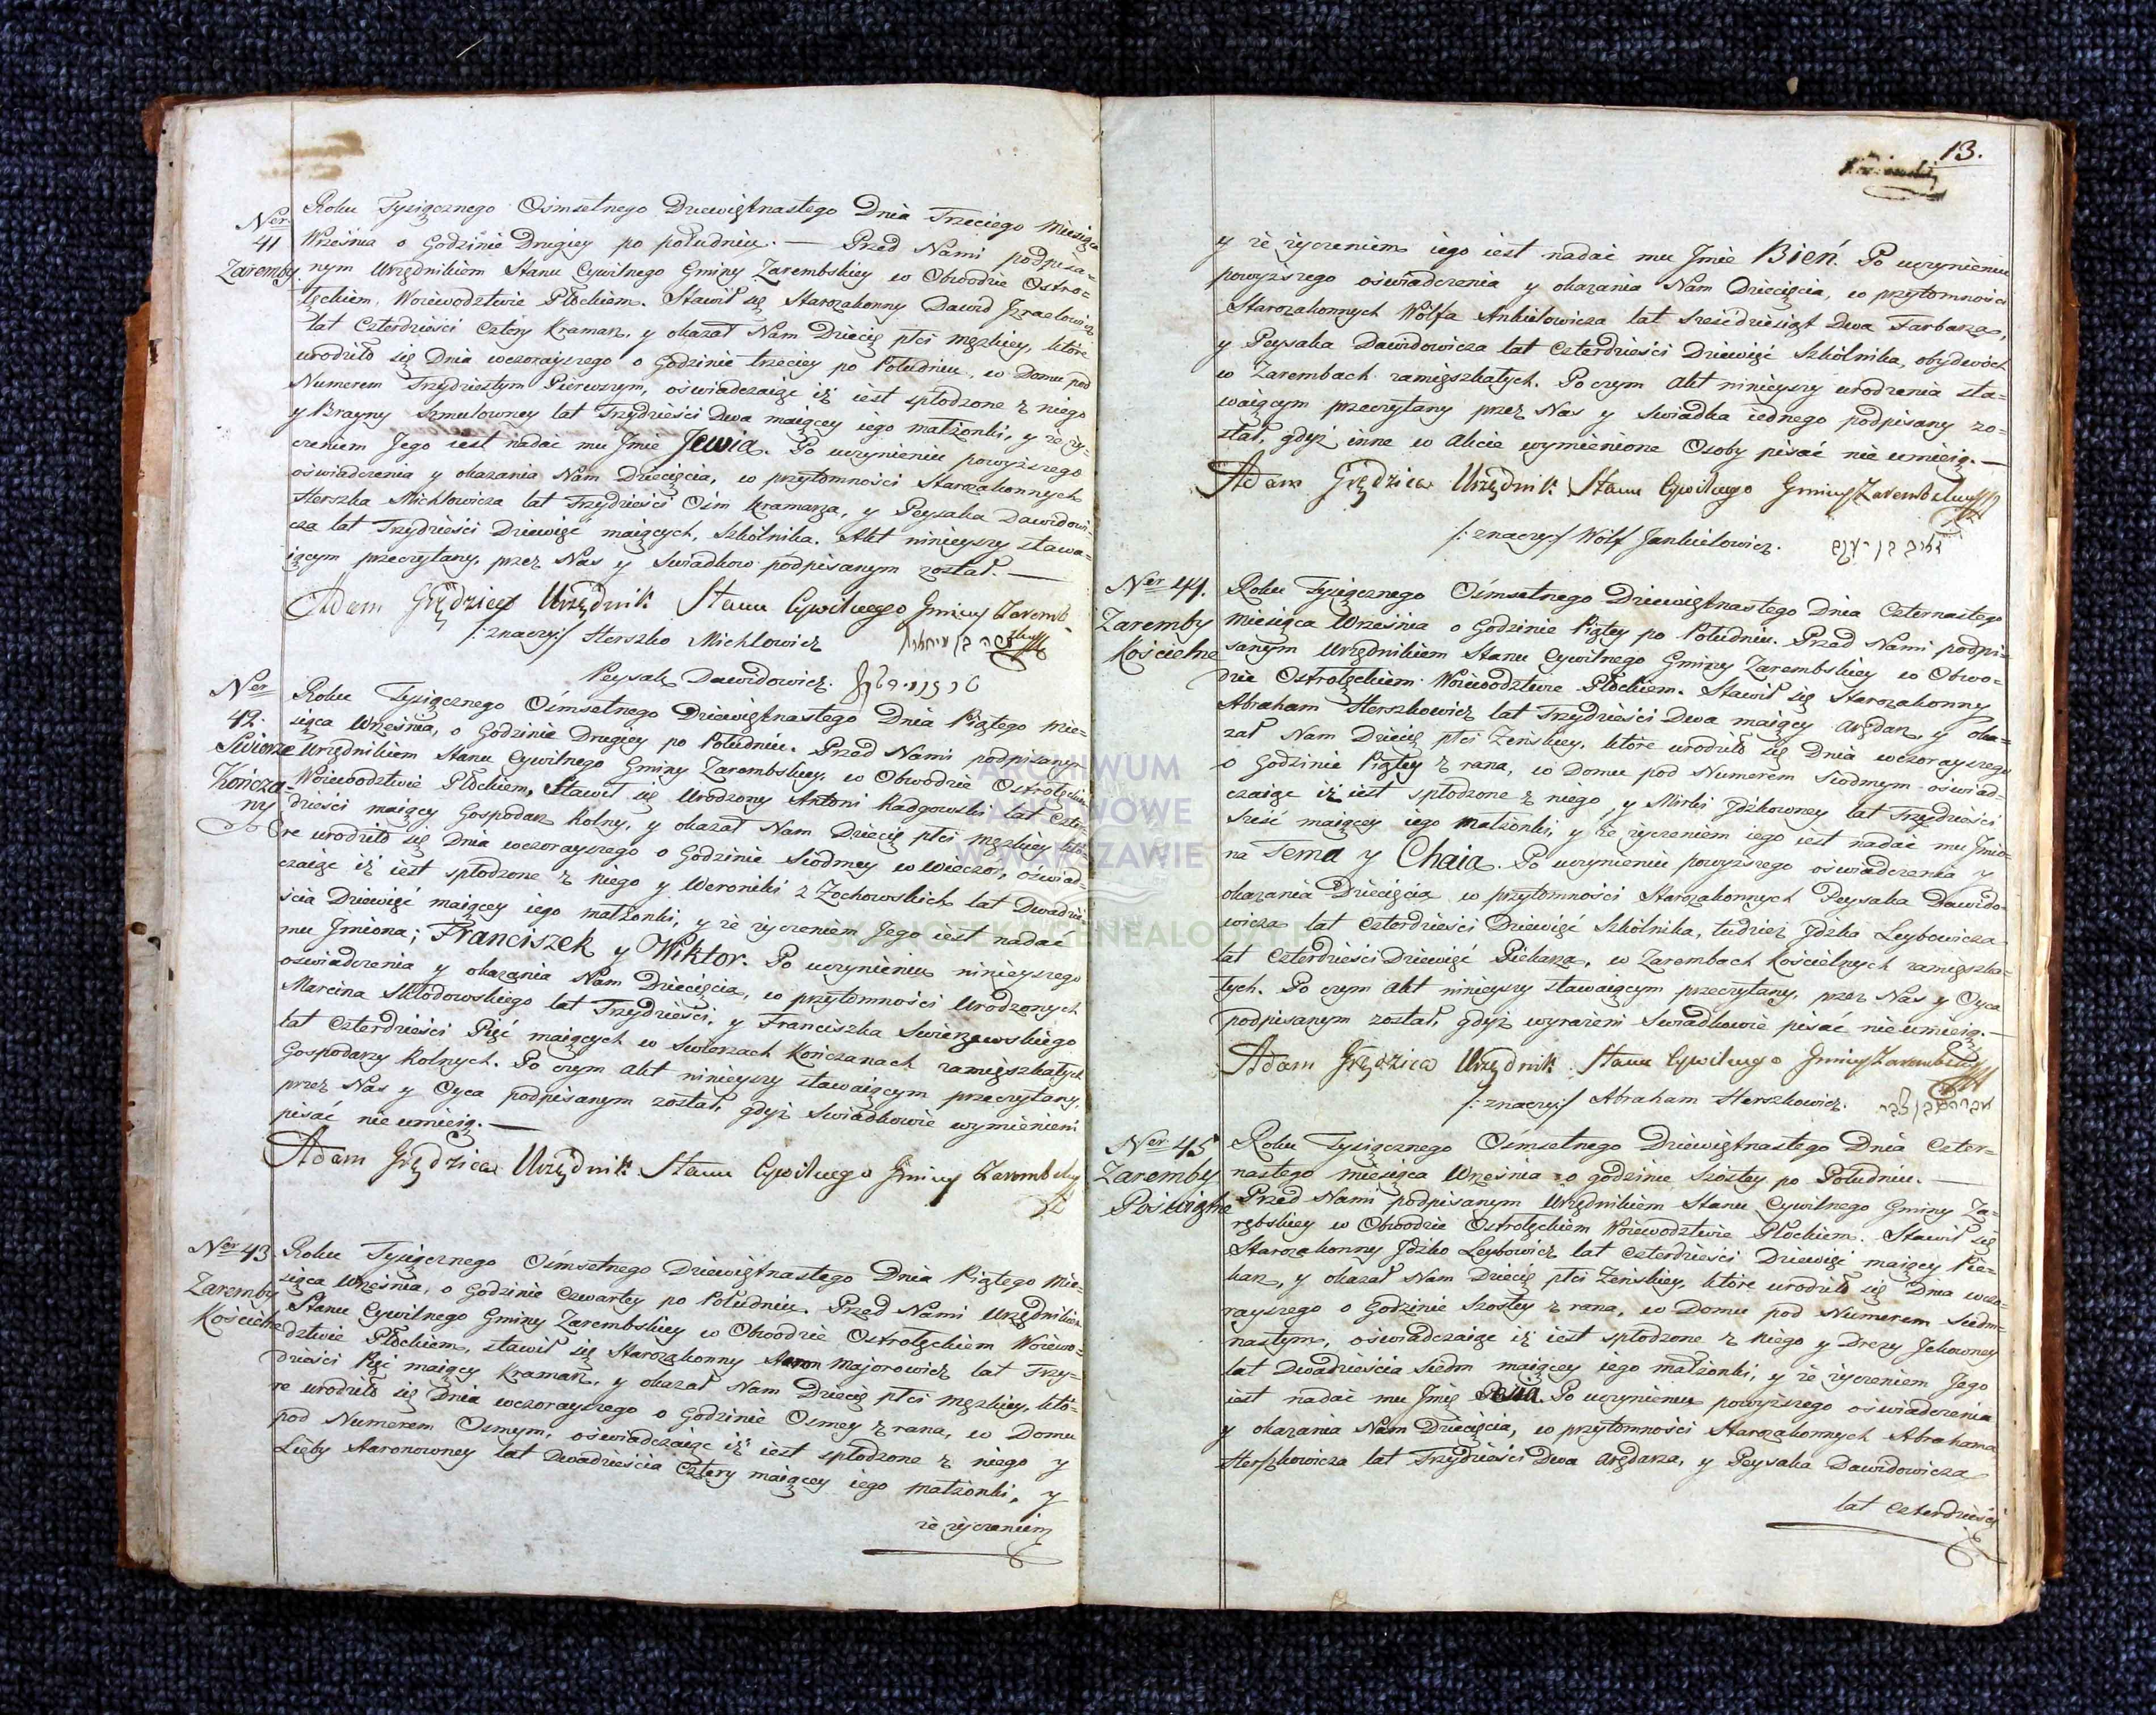 Ner
41
Zaremby
Roku Tysiącznego Ośmsetnego Dziewiętnastego Dnia Trzeciego Miesiąca
Września o Godzinie Drugiey po południu. — Przed Nami podpisa=
nym Urzędnikiem Stanu Cywilnego Gminy Zarembskiey w Obwodzie Ostro=
łęckiem, Woiewodztwie Płockiem. Stawił się Starozakonny Dawid Jzraelowicz
lat Czterdzieści Cztery Kramarz, y okazał Nam Dziecię płci męzkiey, które
urodziło się Dnia wczorayszego o Godzinie trzeciey po Południu, w Domu pod
Numerem Trzydziestym Pierwszym, oświadczaiąc iż iest spłodzone z niego
y Brayny Szmulowney lat Trzydzieści Dwa maiącey iego małżonki, y że ży=
czeniem Jego iest nadać mu Jmie Jewia. Po uczynieniu powyższego
oświadczenia y okazania Nam Dziecięcia, w przytomności Starozakonnych
Herszka Michlowicza lat Trzydzieści Ośm Kramarza, y Peysaka Dawidowi=
cza lat Trzydzieści Dziewięć maiących, Szkólnika. Akt ninieyszy stawa=
iącym przeczytany, przez Nas y Swiadkow podpisanym został. —
Adam Grędzica Urzędnik Stanu Cywilnego Gminy Zaremb
/: znaczy :/ Herszko Michlowicz
Peysak Dawidowicz.
Ner
42.
Swierze
Kończa=
ny
Roku Tysiącznego Ośmsetnego Dziewiętnastego Dnia Piątego Mie=
siąca Września, o Godzinie Drugiey po Południu. Przed Nami podpisanym
Urzędnikiem Stanu Cywilnego Gminy Zarembskiey, w Obwodzie Ostrołęckim
Woiewodztwie Płockiem, Stawił się Urodzony Antoni Radgowski lat Czter=
dzieści maiący Gospodarz Rolny, y okazał Nam Dziecię płci męzkiey któ=
re urodziło się Dnia wczorayszego o Godzinie Siodmey w wieczor, oświad=
czaiąc iż iest spłodzone z niego y Weroniki z Zochowskich lat Dwadzie=
ścia Dziewięć maiącey iego małżonki, y że życzeniem Jego iest nadać
mu Jmiona; Franciszek y Wiktor. Po uczynieniu ninieyszego
oświadczenia y okazania Nam Dziecięcia, w przytomności Urodzonych
Marcina Skłodowskiego lat Trzydzieści, y Franciszka Swierzewskiego
lat Czterdzieści Pięć maiących w Swierzach Kończanach zamięszkałych
Gospodarzy Rolnych. Po czym akt ninieyszy stawaiącym przeczytany,
przez Nas y Oyca podpisanym został, gdyż Swiadkowie wymienieni
pisać nie umieią. —
Adam Grędzica Urzędnik Stanu Cywilnego Gminy Zarembskiey
Ner 43
Zaremby
Kościelne
Roku Tysiącznego Ośmsetnego Dziewiętnastego Dnia Piątego Mie=
siąca Września, o Godzinie Czwartey po Południu. Przed Nami Urzędnikiem
Stanu Cywilnego Gminy Zarembskiey w Obwodzie Ostrołęckiem Woiewo=
dztwie Płockiem, stawił się Starozakonny Aaron Majorowicz lat Trzy=
dzieści Pięć maiący Kramarz, y okazał Nam Dziecię płci męzkiey, któ=
re urodziło się Dnia wczorayszego o Godzinie Osmey z rana, w Domu
pod Numerem Osmym, oświadczaiąc iż iest spłodzone z niego y
Lieby Aaronowney lat Dwadzieścia Cztery maiącey iego małżonki, y
że życzeniem
13.
y że życzeniem iego iest nadać mu Jmie Bień. Po uczynieniu
powyższego oświadczenia y okazania Nam Dziecięcia, w przytomności
Starozakonnych Wolfa Ankielowicza lat Sześćdziesiąt Dwa Farbarza,
y Peysaka Dawidowicza lat Czterdzieści Dziewięć Szkólnika, obydwóch
w Zarembach zamięszkałych. Po czym Akt ninieyszy urodzenia sta=
waiącym przeczytany przez Nas y Swiadka iednego podpisany zo=
stał, gdyż inne w Akcie wymienione Osoby pisać nie umieią. —
Adam Grędzica Urzędnik Stanu Cywilnego Gminy Zarembskiey
/: znaczy :/ Wolf Jankielowicz.
Ner 44.
Zaremby
Kościelne
Roku Tysiącznego Ośmsetnego Dziewiętnastego Dnia Czternastego
Miesiąca Września o Godzinie Piątey po Południu. Przed Nami podpi=
sanym Urzędnikiem Stanu Cywilnego Gminy Zarembskiey w Obwo=
dzie Ostrołęckiem Woiewodztwie Płockiem. Stawił się Starozakonny
Abraham Herszkowicz lat Trzydzieści Dwa maiący Arędarz, y oka=
zał Nam Dziecię płci Żeńskiey, które urodziło się Dnia wczorayszego
o Godzinie Piątey z rana, w Domu pod Numerem Siodmym oświad=
czaiąc iż iest spłodzone z niego, y Mirki Jdzkowney lat Trzydzieści
Sześć maiącey iego małżonki, y że życzeniem iego iest nadać mu Jmio=
na Tema y Chaia. Po uczynieniu powyższego oświadczenia y
okazania Dziecięcia w przytomności Starozakonnych Peysaka Dawido=
wicza lat Czterdzieści Dziewięć Szkólnika, tudzież Jdzka Leybowicza
lat Czterdzieści Dziewięć Piekarza, w Zarembach Kościelnych zamięszka=
łych. Po czym Akt ninieyszy stawaiącym przeczytany, przez Nas y Oyca
podpisanym został, gdyż wyrażeni Swiadkowie pisać nie umieią. —
Adam Grędzica Urzędnik Stanu Cywilnego Gminy Zarembskiey
/: znaczy :/ Abraham Herszkowicz.
Ner 45
Zaremby
Poświętne
Roku Tysiącznego Ośmsetnego Dziewiętnastego Dnia Czter=
nastego miesiąca Września o godzinie Szóstey po Południu. —
Przed Nami podpisanym Urzędnikiem Stanu Cywilnego Gminy Za=
rębskiey w Obwodzie Ostrołęckiem Woiewodztwie Płockiem. Stawił się
Starozakonny Jdzko Leybowicz lat Czterdzieści Dziewięć maiący Pie=
karz, y okazał Nam Dziecię płci Żeńskiey, które urodziło się Dnia wczo=
rayszego o Godzinie Szostey z rana, w Domu pod Numerem Siedm=
nastym, oświadczaiąc iż iest spłodzone z niego y Drezy Jckowney
lat Dwadzieścia Siedm maiącey iego małżonki, y że życzeniem Jego
iest nadać mu Jmię Po uczynieniu powyższego oświadczenia
y okazania Nam Dziecięcia, w przytomności Starozakonnych Abrahama
Herszkowicza lat Trzydzieści Dwa Arędarza, y Peysaka Dawidowicza
lat Czterdzieści
ARCHIWUM
PAŃSTWOWE
W WARSZAWIE